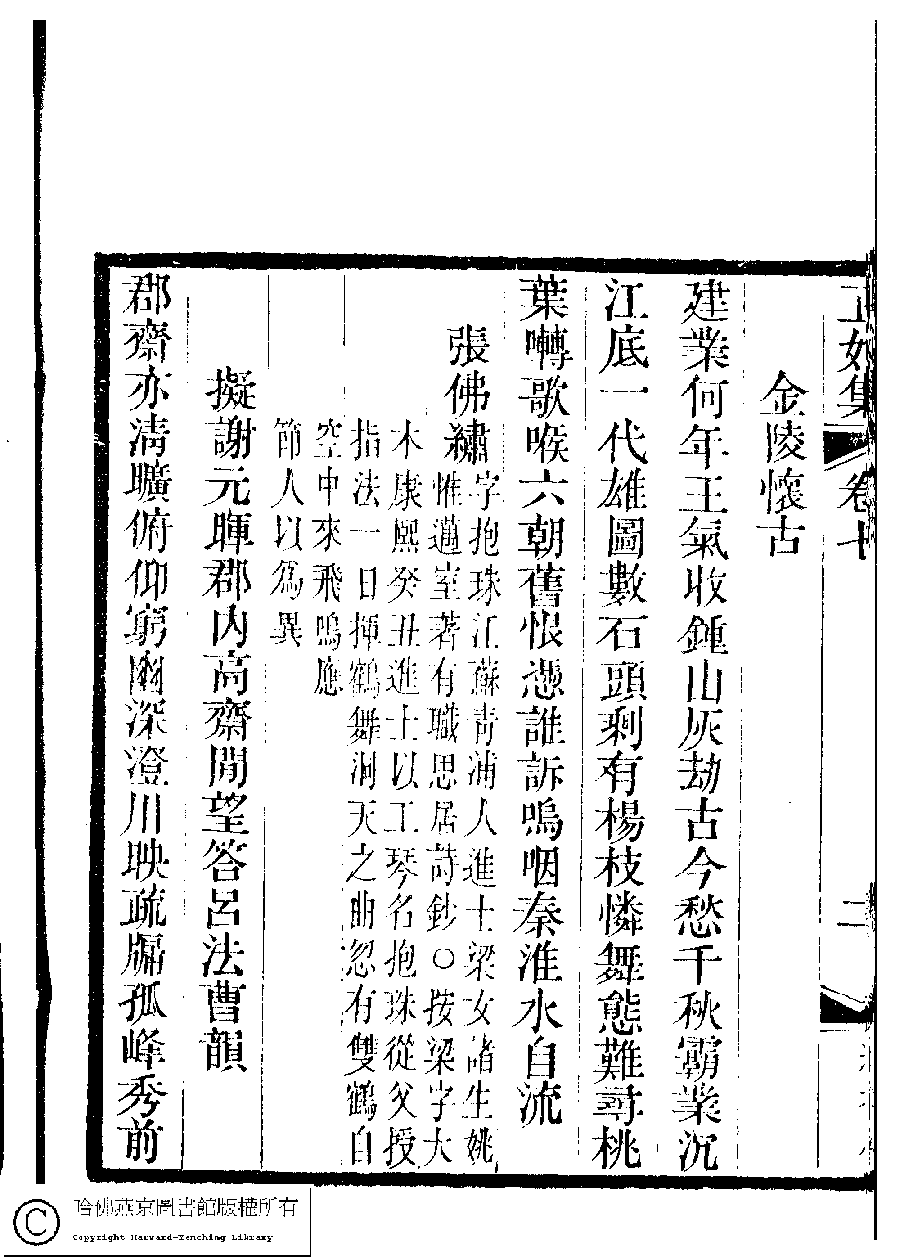 集 卷十 二
金陵懷古
建業何年王氣收鍾山灰劫古今愁千秋霸業沉
江底一代雄圖數石頭剩有楊枝憐舞態難尋桃
葉囀歌喉六朝舊恨憑誰訴嗚咽秦淮水自流
張佛繡
字抱珠江蘇青浦人進士梁女諸生姚
惟邁室著有職思居詩鈔○按梁字大
木康熙癸丑進士以工琴名抱珠從父授
指法一日揮鶴舞洞天之曲忽有雙鶴自
空中來飛鳴應
節人以為異
擬謝元暉郡內高齋閒望答呂法曹韻
郡齋亦清曠俯仰窮幽深澄川映疏牖孤峰秀前
C 哈佛燕京圖書館版權所有
Copyright Harvard-Yenching Library